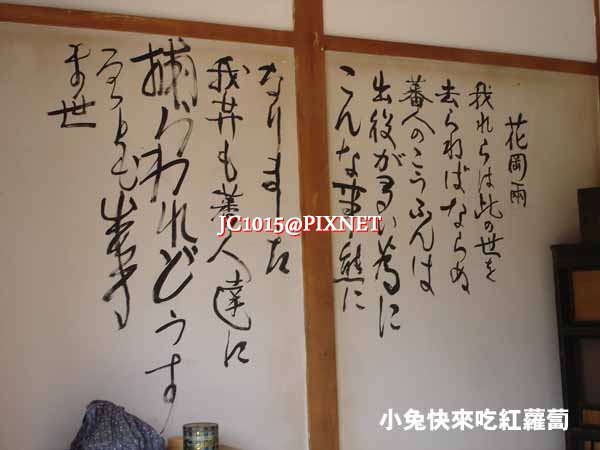 花岡兩
我れらは此の世を
去らねばならぬ
蕃人のこうふんは
出役が多い為に
こんな事態に
なりました
我等も蕃人達に
捕らわれどうす
ることも出来
ま世
JC1015@PIXNET
小兔快來吃紅蘿蔔